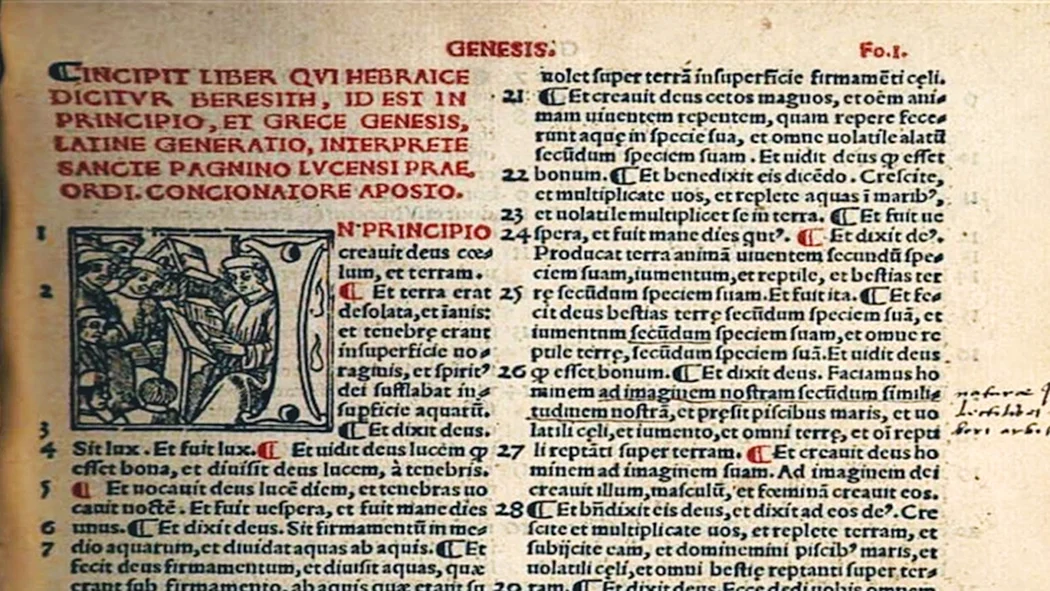 GENESIS.
Fo.I.
¶INCIPIT LIBER QVI HEBRAICE
DICITVR BERESITH, ID EST IN
PRINCIPIO, ET GRECE GENESIS,
LATINE GENERATIO, INTERPRETE
SANCTE PAGNINO LVCENSI PRAE,
ORDI. CONCIONATORE APOSTO.
1 N PRINCIPIO
creauit deus cœ⸗
lum, et terram.
2 ¶ Et terra erat
desolata, et īanis:
et tenebrę erant
insuperficie uo⸗
raginis, et spirit⁹
dei sufflabat in⸗
supficie aquarū.
3 ¶Et dixit deus.
4 Sit lux. Et fuit lux. ¶ Et uidit deus lucem ꝙ
esset bona, et diuisit deus lucem, à tenebris.
5 ¶ Et uocauit deus lucē diem, et tenebras uo
cauit noctē. Et fuit uespera, et fuit mane dies
6 unus. ¶Et dixit deus. Sit firmamentū in me⸗
7 dio aquarum, et diuidat aquas ab aquis. ¶Et
fecit deus firmamentum, et diuisit aquas, quæ
erant sub firmamento, ab aquis quæ erant su
uolet super terrā insuperficie firmamēti cęli.
21 ¶Et creauit deus cetos magnos, et oēm ani⸗
mam uiuentem repentem, quam repere fece⸗
runt aquę in specie sua, et omne uolatile alatū
secūdum speciem suam. Et uidit deus ꝙ esset
22 bonum. ¶Et benedixit eis dicēdo. Crescite,
et multiplicate uos, et replete aquas ī marib⁹,
23 et uolatile multiplicet se in terra. ¶Et fuit ue
24 spera, et fuit mane dies qnt⁹. ¶ Et dixit de⁹.
Producat terra animā uiuentem secundū spe⸗
ciem suam, iumentum, et reptile, et bestias ter
25 rę secūdum speciem suam. Et fuit ita. ¶Et fe⸗
cit deus bestias terrę secūdum speciem suā, et
iumentum secūdum speciem suam, et omne re
ptile terrę, secūdum speciem suā. Et uidit deus
26 ꝙ esset bonum. ¶Et dixit deus. Faciamus ho
minem ad imaginem nostram secūdum simili⸗
tudinem nostrā, et pręsit piscibus maris, et uo
latili cęli, et iumento, et omni terrę, et oī repti
27 li reptāti super terram. ¶Et creauit deus ho
minem ad imaginem suam. Ad imaginem dei
creauit illum, masculū, et fœminā creauit eos.
28 ¶Et bn̄dixit eis deus, et dixit ad eos de⁹. Cre
scite et multiplicate uos, et replete terram, et
subijcite eam, et dominemini piscib⁹ maris, et
uolatili cęli, et omni bestię reptanti super ter⸗
29 ram. ¶Et dixit deus. Ecce dedi uobis omnem